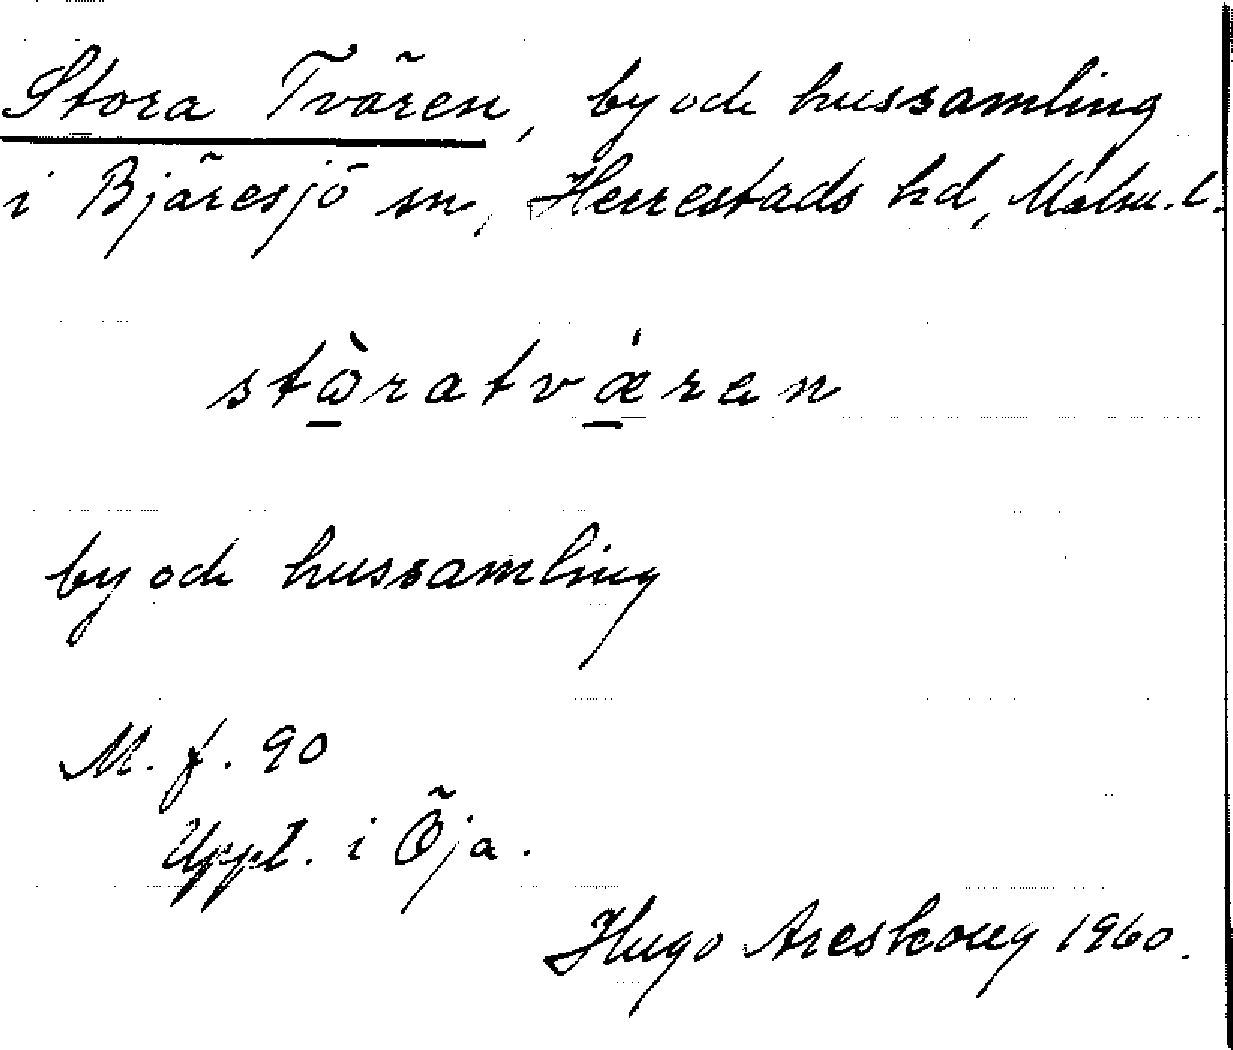 Stora Tvären, by och hussamling
i Bjäresjö sn, Herrestads hd, Malm. l.
stɷ̠̀ratvǽ̠ran
by och hussamling
M. f. 90
Uppt. i Öja.
Hugo Areskoug 1960.